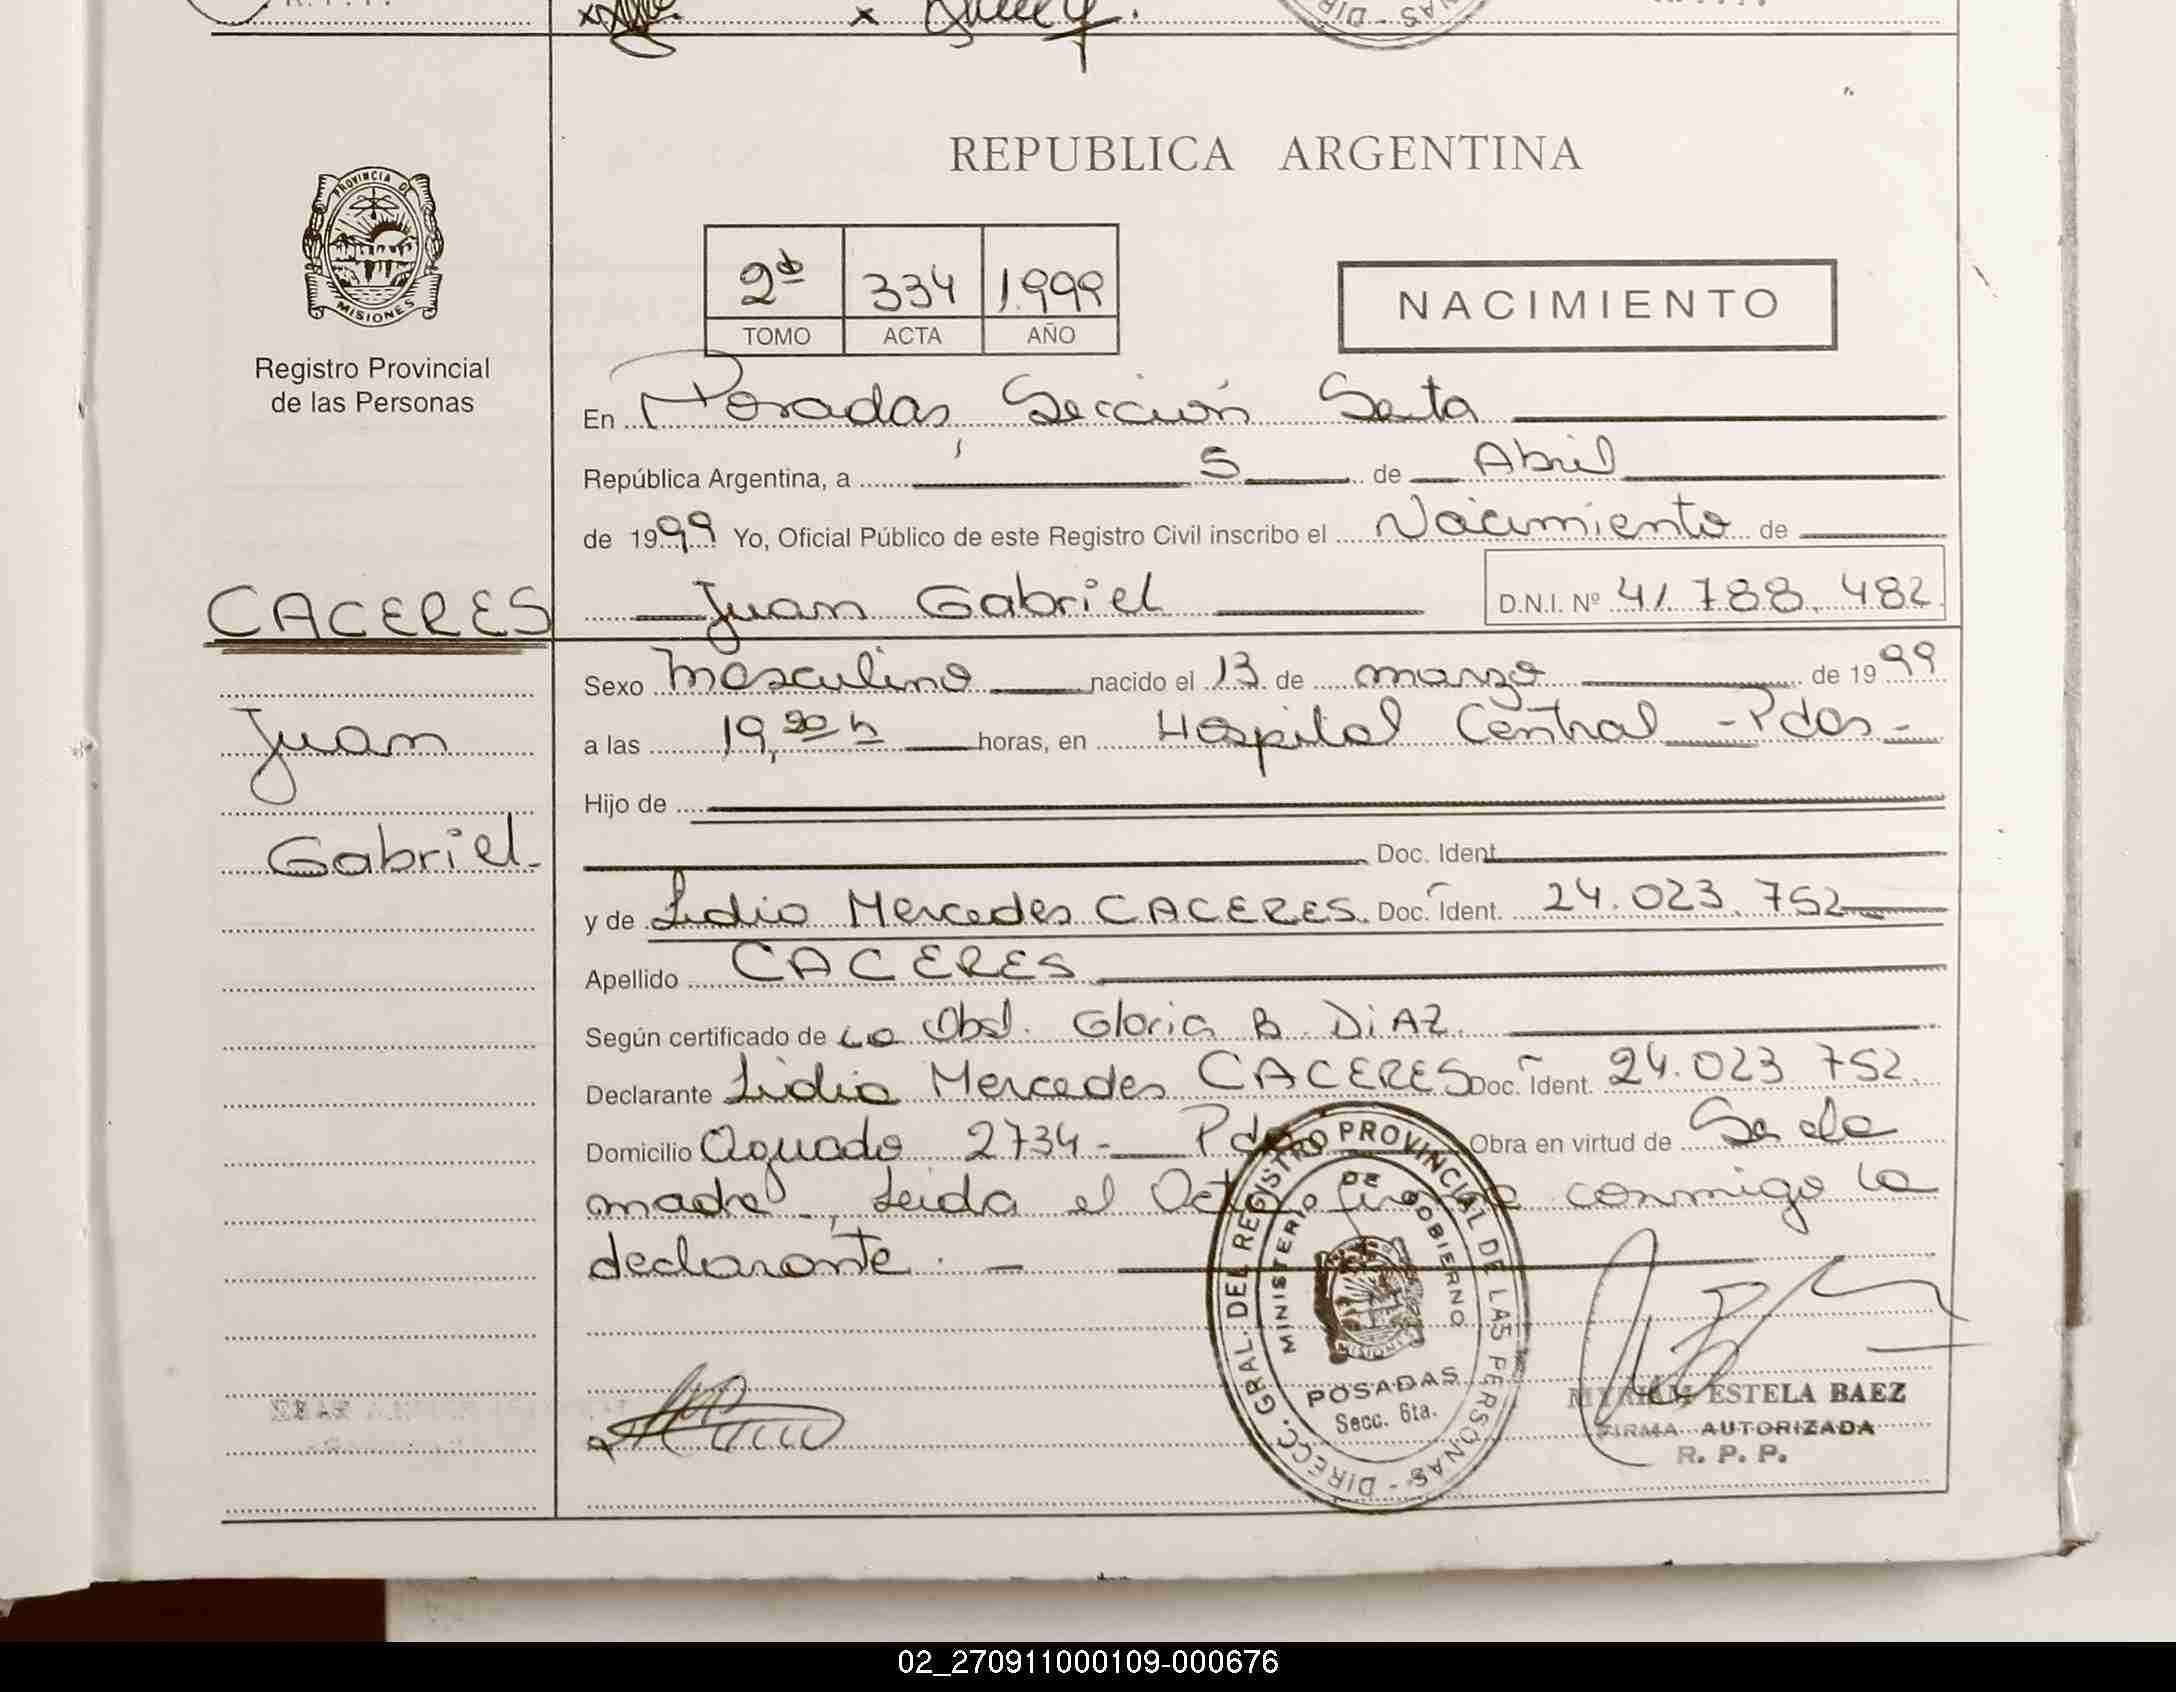 R. P. P.
DIR - SAN
REPUBLICA ARGENTINA
PROVINCIA DE
MISIONES
Registro Provincial
de las Personas
2º 334 1.999
TOMO ACTA AÑO
NACIMIENTO
En Posadas, Sección Sexta
República Argentina, a 5 de Abril
de 1999 Yo, Oficial Público de este Registro Civil inscribo el Nacimiento de
CACERES
Juan Gabriel D.N.I. Nº 41.788.482
Sexo Masculino nacido el 13 de marzo de 1999
Juan
a las 19,20 h horas, en Hospital Central - Pdas -
Hijo de
Gabriel.-
Doc. Ident.
y de Lidia Mercedes CACERES Doc. Ident. 24.023.752
Apellido CACERES
Según certificado de La Obst. Gloria B. DiAZ
Declarante Lidia Mercedes CACERES Doc. Ident. 24.023.752.
Domicilio Aguado 2734 - Pdas Obra en virtud de Se de
madre., Leida el Acta firma conmigo la
declarante. -
DIRECC. GRAL. DEL REGISTRO PROVINCIAL DE LAS PERSONAS -
MINISTERIO DE GOBIERNO
MISIONES
POSADAS
Secc. 6ta.
MYRIAM ESTELA BAEZ
FIRMA AUTORIZADA
R. P. P.
02_270911000109-000676